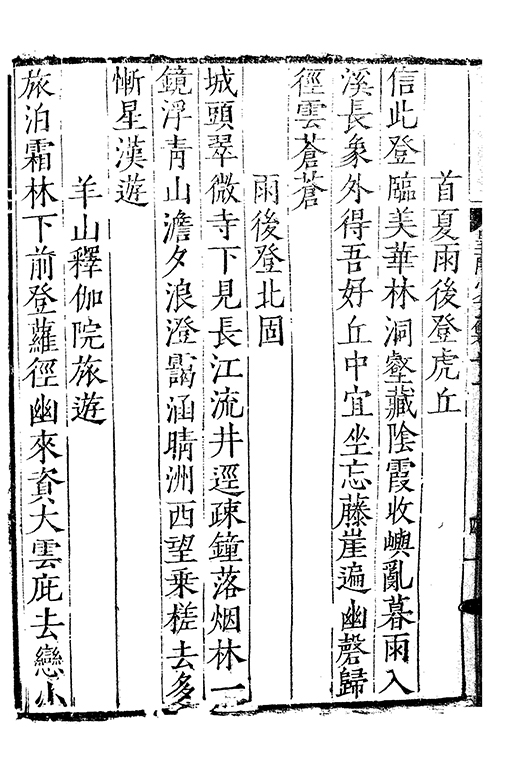 首夏雨後登虎丘
信此登臨美華林洞壑藏陰霞收嶼亂暮雨入
溪長象外得吾好丘中宜坐忘藤崖遍幽磬歸
徑雲蒼蒼
雨後登北固
城頭翠微寺下見長江流井逕疎鐘落烟林一
鏡浮青山澹夕浪澄靄涵晴洲西望乗槎去多
慚星漢遊
羊山釋伽院旅遊
旅泊霜林下前登蘿徑幽來資大雲庇去戀小